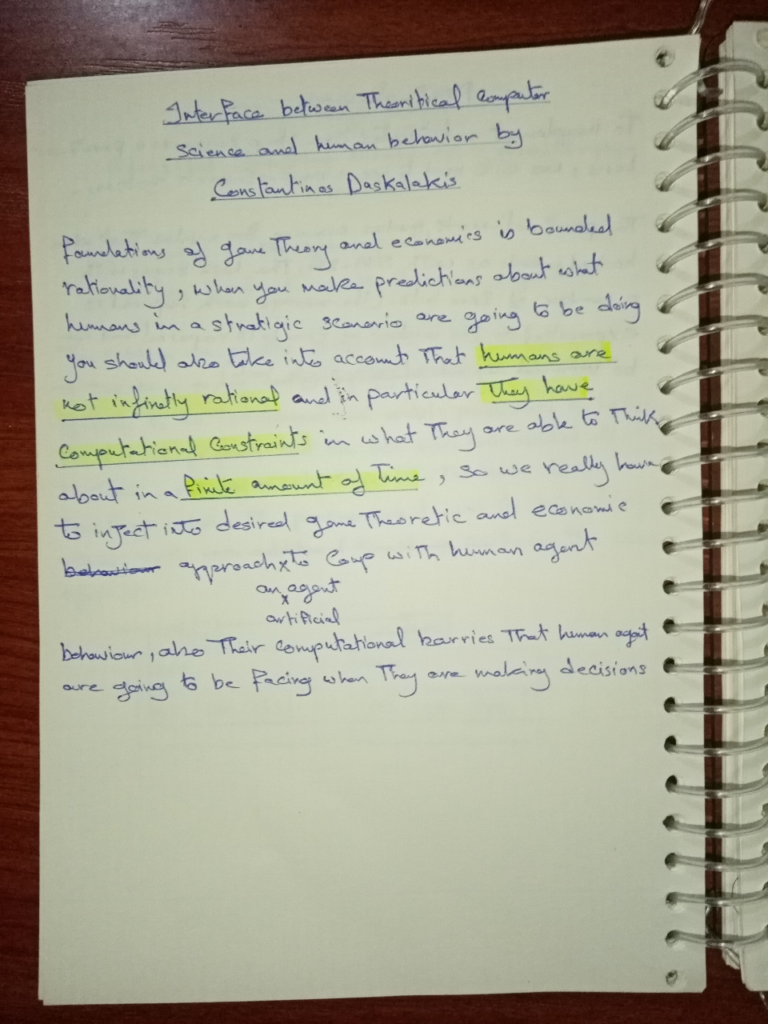 Interface between Theoritical computer
science and human behavior by
Constantinos Daskalakis
foundations of game Theory and economics is bounded
rationality, when you make predictions about what
humans in a stratigic scenario are going to be doing
you should also take into account That humans are
not infinetly rational and in particular They have
Computational Constraints in what They are able to Think
about in a finite amount of Time, so we really have
to inject into desired game Theoretic and economic
behaviour approach x to Coup with human agent
an x agent
artificial
behaviour, also Their computational barries That human aget
are going to be facing when They are making decisions